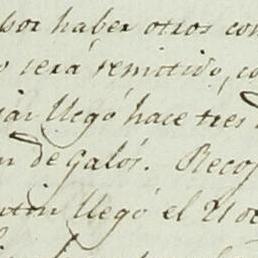 por haber otros con
será remitido, co
llegó hace tres
de Galós. Recog
llegó el 21 oc